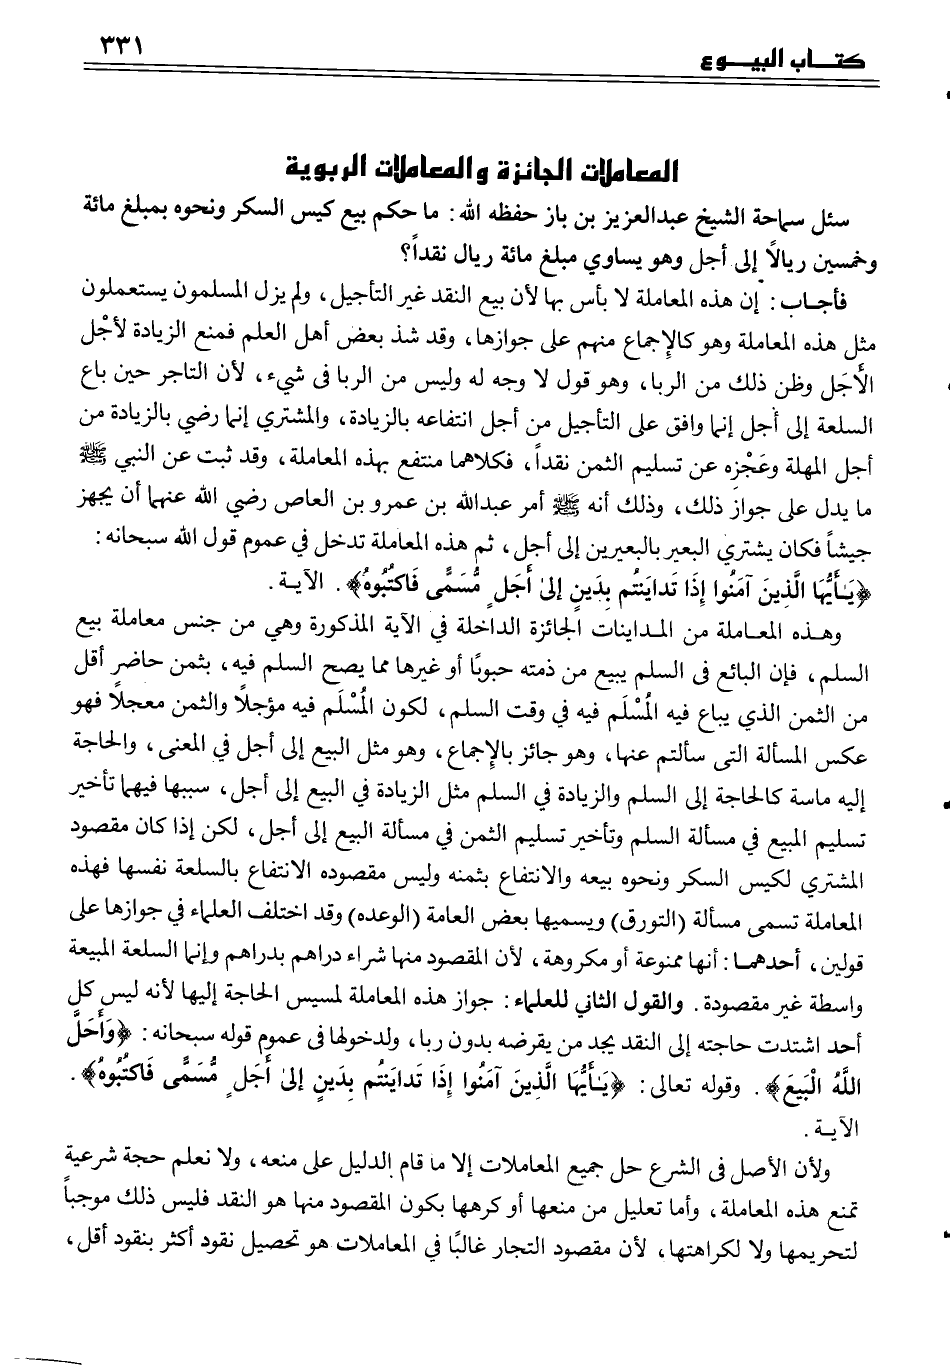 ٣٣١
كتـــاب البيـــوع
المعاملات الجائزة والمعاملات الربوية
سئل سماحة الشيخ عبدالعزيز بن باز حفظه الله: ما حكم بيع كيس السكر ونحوه بمبلغ مائة
وخمسين ريالاً إلى أجل وهو يساوي مبلغ مائة ريال نقداً؟
فأجـاب: إن هذه المعاملة لا بأس بها لأن بيع النقد غير التأجيل، ولم يزل المسلمون يستعملون
مثل هذه المعاملة وهو كالإجماع منهم على جوازها، وقد شذ بعض أهل العلم فمنع الزيادة لأجْل
الأَجَل وظن ذلك من الربا، وهو قول لا وجه له وليس من الربا فى شيء، لأن التاجر حين باع
السلعة إلى أجل إنما وافق على التأجيل من أجل انتفاعه بالزيادة، والمشتري إنما رضي بالزيادة من
أجل المهلة وعَجْزِه عن تسليم الثمن نقداً، فكلاهما منتفع بهذه المعاملة، وقد ثبت عن النبي ﷺ
ما يدل على جواز ذلك، وذلك أنه ﷺ أمر عبدالله بن عمرو بن العاص رضي الله عنهما أن يجهز
جيشاً فكان يشتري البعير بالبعيرين إلى أجل، ثم هذه المعاملة تدخل في عموم قول الله سبحانه:
﴿يَـٰأَيُّهَا الَّذِينَ آمَنُوا إِذَا تَدايَنتُم بِدَينٍ إلىٰ أَجَلٍ مُّسَمًّى فَاكتُبُوهُ﴾. الآيـة.
وهـذه المعـاملة من المـداينات الجائزة الداخلة في الآية المذكورة وهي من جنس معاملة بيع
السلم، فإن البائع فى السلم يبيع من ذمته حبوبًا أو غيرها مما يصح السلم فيه، بثمن حاضرٍ أقل
من الثمن الذي يباع فيه المُسْلَم فيه في وقت السلم، لكون المُسْلَم فيه مؤجلاً والثمن معجلاً فهو
عكس المسألة التى سألتم عنها، وهو جائز بالإجماع، وهو مثل البيع إلى أجل في المعنى، والحاجة
إليه ماسة كالحاجة إلى السلم والزيادة في السلم مثل الزيادة في البيع إلى أجل، سببها فيهما تأخير
تسليم المبيع في مسألة السلم وتأخير تسليم الثمن في مسألة البيع إلى أجل، لكن إذا كان مقصود
المشتري لكيس السكر ونحوه بيعه والانتفاع بثمنه وليس مقصوده الانتفاع بالسلعة نفسها فهذه
المعاملة تسمى مسألة (التورق) ويسميها بعض العامة (الوعده) وقد اختلف العلماء في جوازها على
قولين، أحدهمـا: أنها ممنوعة أو مكروهة، لأن المقصود منها شراء دراهم بدراهم وإنما السلعة المبيعة
واسطة غير مقصودة. والقول الثاني للعلماء: جواز هذه المعاملة لمسيس الحاجة إليها لأنه ليس كل
أحد اشتدت حاجته إلى النقد يجد من يقرضه بدون ربا، ولدخولها فى عموم قوله سبحانه: ﴿وَأَحَلَّ
اللَّهُ الْبَيعَ﴾. وقوله تعالى: ﴿يَـٰأَيُّهَا الَّذينَ آمَنُوا إِذَا تَدايَنتُم بِدَينٍ إلىٰ أَجَلٍ مُّسَمًّى فَاكتُبُوهُ﴾.
الآيـة.
ولأن الأصل فى الشرع حل جميع المعاملات إلا ما قام الدليل على منعه، ولا نعلم حجة شرعية
تمنع هذه المعاملة، وأما تعليل من منعها أو كرهها بكون المقصود منها هو النقد فليس ذلك موجباً
لتحريمها ولا لكراهتها، لأن مقصود التجار غالبًا في المعاملات هو تحصيل نقود أكثر بنقود أقل،